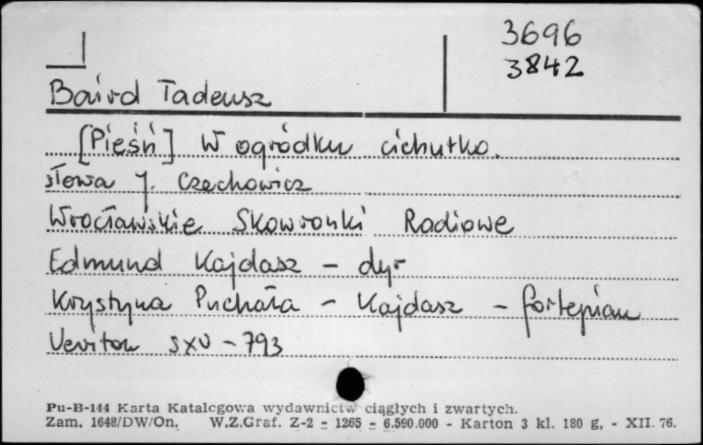 3696
3842
Baird Tadeusz
[Pieśń] W ogródku cichutko.
słowa J. Czechowicz
Wrocławskie Skowronki Radiowe
Edmund Kajdasz - dyr
Krystyna Puchała - Kajdasz - fortepian
Veriton SXV - 793
Pu-B-144 Karta Katalogowa wydawnictw ciągłych i zwartych.
Zam. 1648/DW/On. W.Z.Graf. Z-2 = 1265 = 6.590.000 - Karton 3 kl. 180 g, - XII. 76.